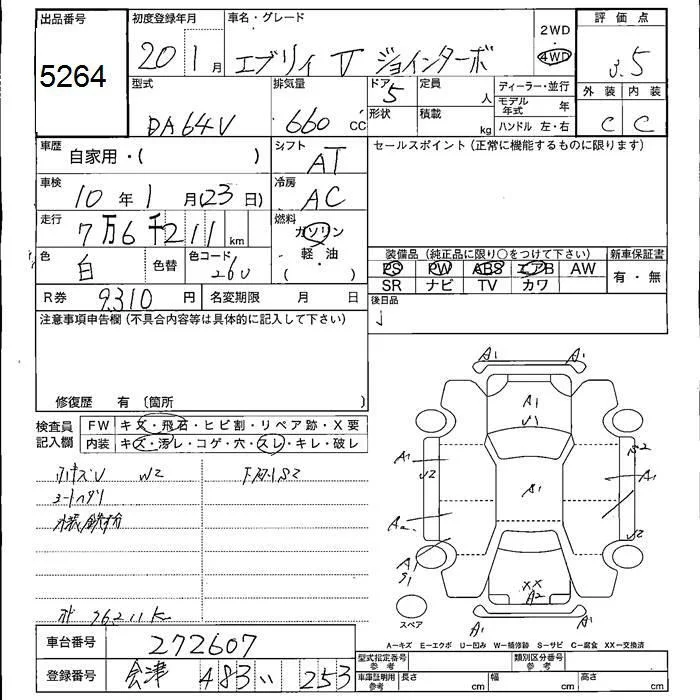 出品番号 初度登録年月 車名・グレード 評価点
5264 20 1月 エブリィ V ジョインターボ 2WD 4WD 3.5
型式 排気量 ドア 5 定員 人 ディーラー・並行 外装 内装
DA64V 660 CC 形状 積載 kg モデル年式 年 C C
ハンドル 左・右
車歴 自家用・( ) シフト AT セールスポイント(正常に機能するものに限ります)
車検 10年 1月(23日) 冷房 AC
走行 7万6千211 km 燃料 ガソリン
色 白 色替 色コード 26U 軽・油 ( )
装備品(純正品に限り○をつけて下さい) 新車保証書
PS PW ABS エアB AW 有・無
SR ナビ TV カワ
R券 9310円 名変期限 月 日 後日品
注意事項申告欄(不具合内容等は具体的に記入して下さい)
修復歴 有 〔箇所 〕
検査員記入欄 FW キズ・飛石・ヒビ割・リペア跡・X要
内装 キズ・汚レ・コゲ・穴・スレ・キレ・破レ
W2
76211K
A1 A1
A1
U1
A1 U2 A1 S2 A1
A2 U2
A S1
XX
A2
A1 A1
スペア
A－キズ E－エクボ U－凹み W－補修跡 S－サビ C－腐食 XX－交換済
車台番号 272607
登録番号 会津 483 い 253
型式指定番号 参考 類別区分番号 参考
車庫証明用 参考 長さ cm 幅 cm 高さ cm